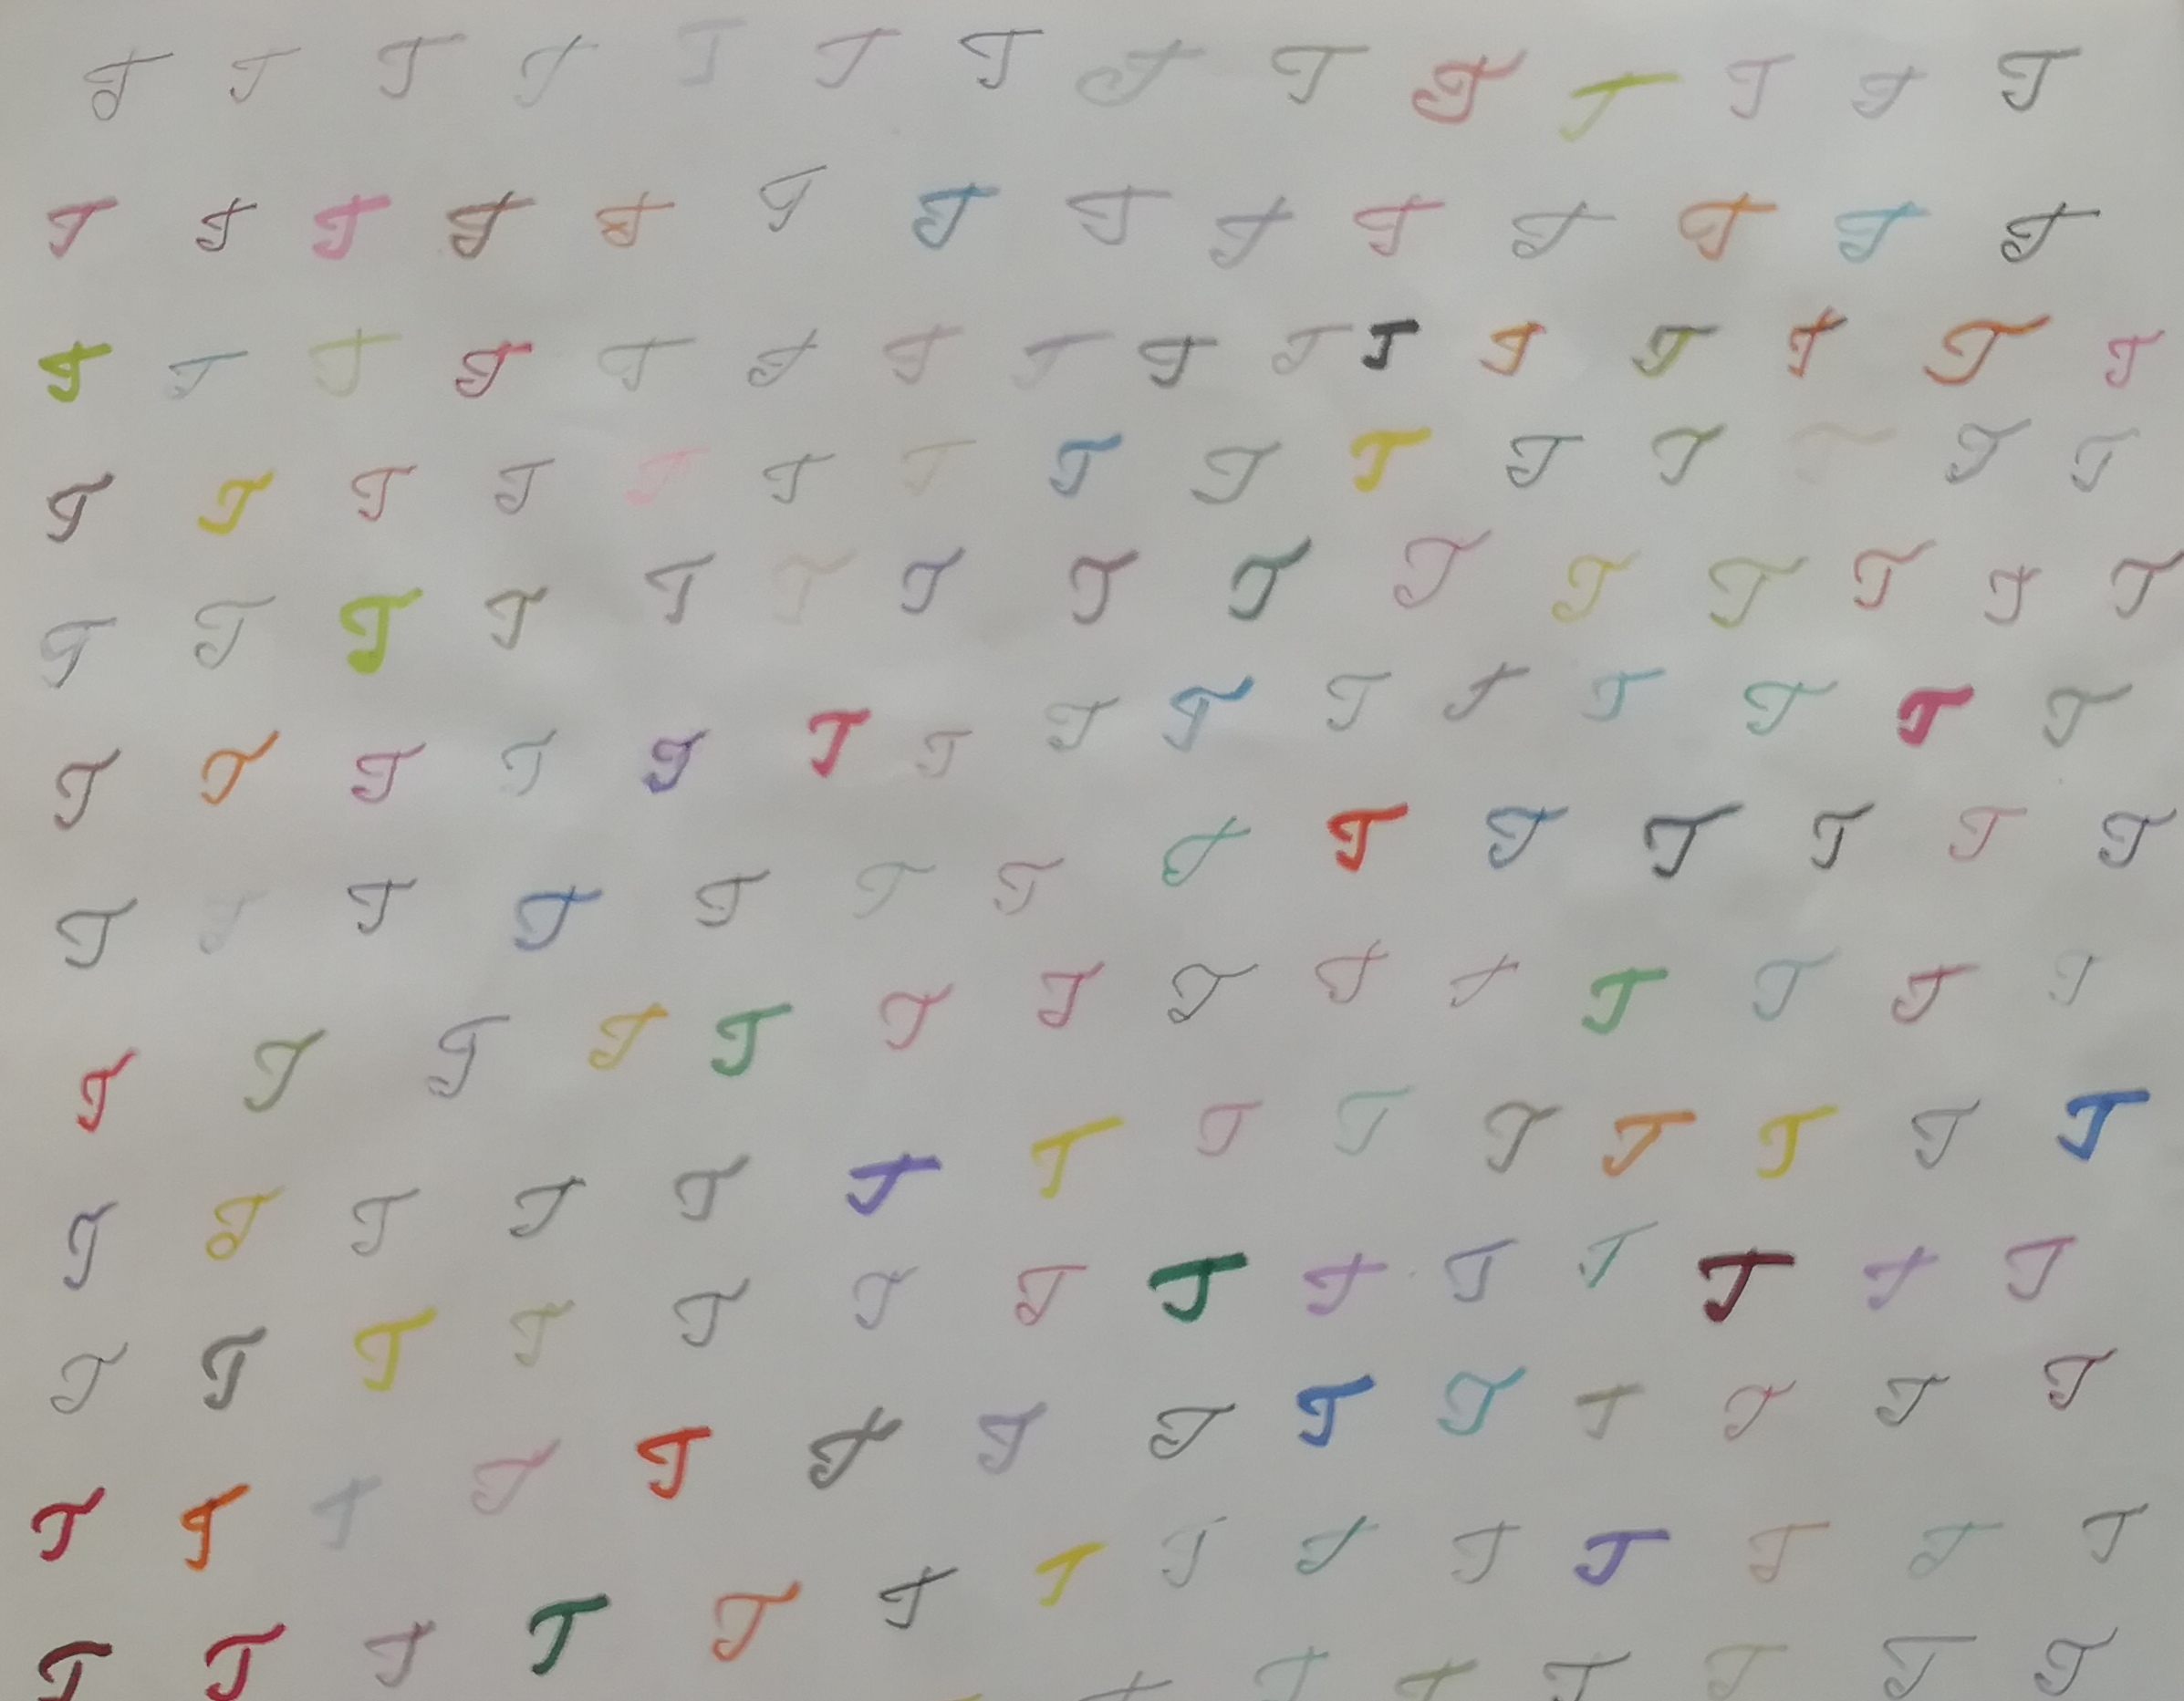 T T T T T T T T T T T T T T
T T T T T T T T T T T T T T
T T T T T T T T T T T T T T T T
T T T T T T T T T T T T T T T
T T T T T T T T T T T T T T T
T T T T T T T T T T T T T T T
T T T T T T T T T T T T T T
T T T T T T T T T T T T T T
T T T T T T T T T T T T T T
T T T T T T T T T T T T T T
T T T T T T T T T T T T T T
T T T T T T T T T T T T T T
T T T T T T